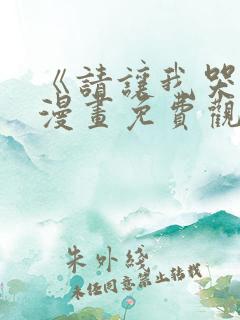 《請讓我哭
漫畫免費觀
朱外綫
未任同意禁止转载